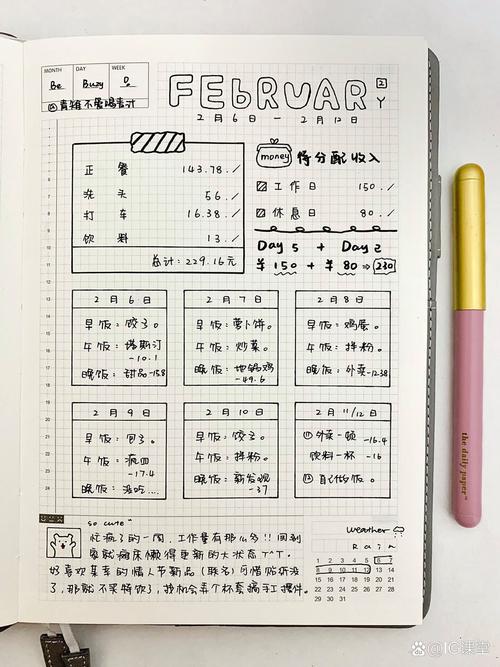 MONTH DAY WEEK
Be Busy Do
@青稚不爱喝青汁
FEBRUARY
2月6日 — 2月12日
正餐 143.78./
洗头 56./
打车 16.38./
饮料 13./
总计:229.16元
money 得分配收入
工作日 150./
休息日 80./
Day 5 + Day 2
¥150 + ¥80 ⇒ 230
2月6日
早饭:饺子。
午饭:塔斯汀
-10.1
晚饭:甜品-15.8
2月7日
早饭:萝卜饼。
午饭:炒菜。
晚饭:地锅鸡
-49.6
2月8日
早饭:鸡蛋。
午饭:拌粉。
晚饭:外卖-12.38
2月9日
早饭:包子。
午饭:
-17.4
晚饭:没吃...
2月10日
早饭:饺子。
午饭:拌粉。
晚饭:新发现
-37
2月11/12日
⑪外卖一顿
-16.4
饮料一杯 -16
⑫自己做饭。
so cute~
忙疯了的一周,工作量有那么多!!回到
家就瘫床懒得更新的大状态T^T.
好喜欢某幸的情人节新品(联名)可惜贴纸没
了,那就不买特饮了,找机会弄个杯套搞手工摆件。
weather
Rain
1 2 3 4 5 6 7
8 9 10 11 12 13 14
15 16 17 18 19 20 21
22 23 24 25 26 27 28
29 30 31
the daily paper™
@IG课堂